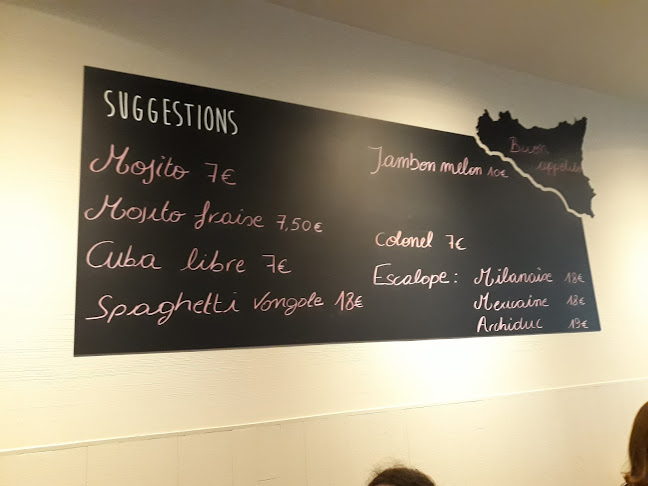 SUGGESTIONS
Mojito 7€
Mojito fraise 7,50€
Cuba libre 7€
Spaghetti Vongole 18€
Jambon melon 10€
Colonel 7€
Escalope: Milanaise 18€
Mexicaine 18€
Archiduc 19€
Buon
appetito